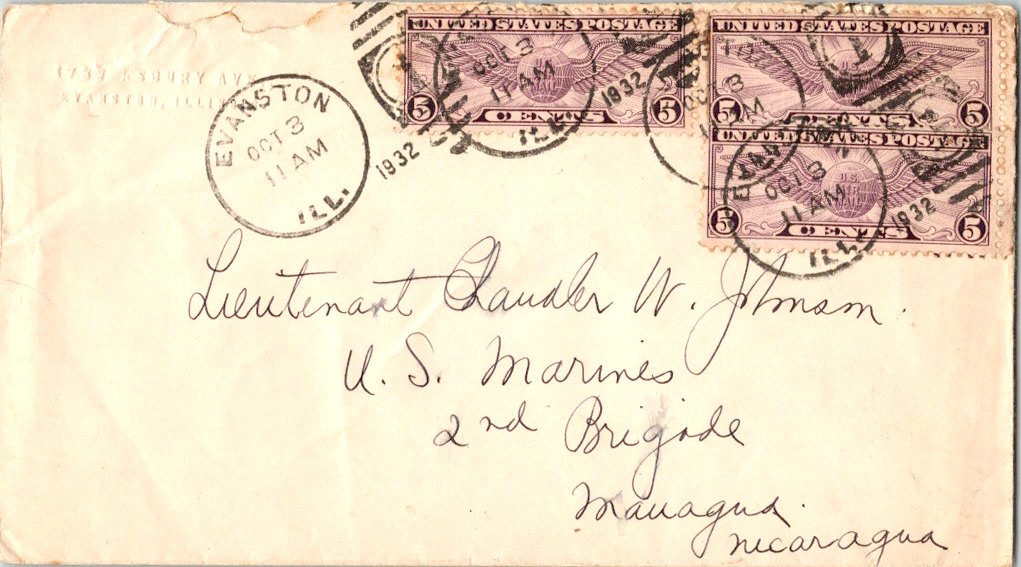 1737 ASBURY AVE
EVANSTON, ILLIN
EVANSTON
OCT 3
11 AM
ILL.
1932
UNITED STATES POSTAGE
5 CENTS 5
OCT 3
11 AM
ILL.
1932
UNITED STATES POSTAGE
5 CENTS 5
UNITED STATES POSTAGE
U.S.
MAIL
5 CENTS 5
OCT 3
11 AM
ILL.
1932
Lieutenant Chandler W. Johnson.
U. S. Marines
2nd Brigade
Managua.
Nicaragua